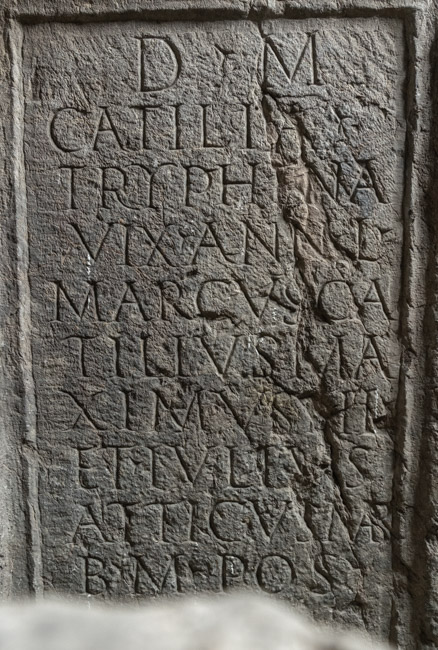 D M
CATILIAE
TRYPHENA
VIX ANN L
MARCVS CA
TILIVS MA
XIMVS
ET IVLIVS
ATTICVS MA
B M POS